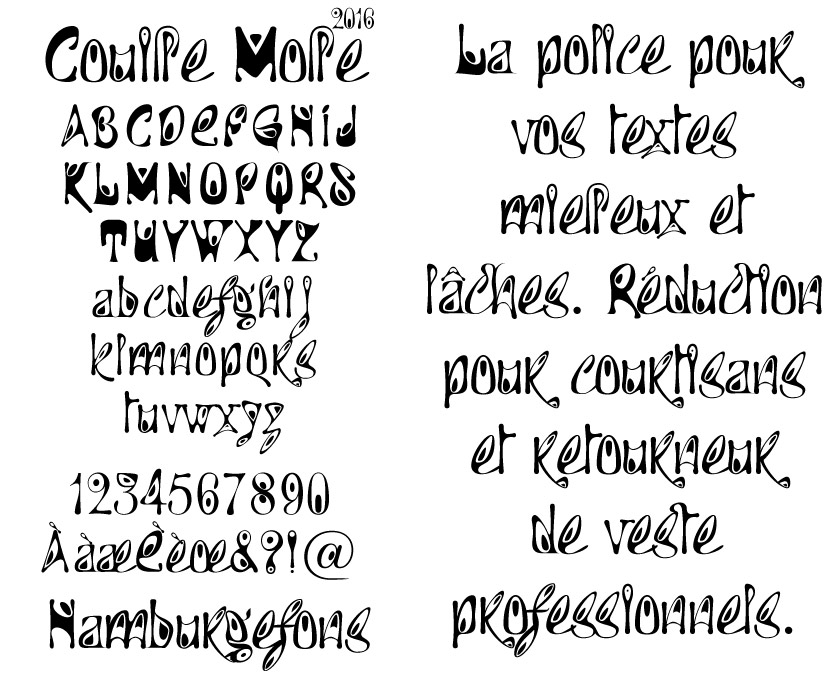 2016
Couille Molle
ABCDEFGHIJ
KLMNOPQRS
TUVWXYZ
abcdefghij
klmnopqrs
tuvwxyz
1234567890
ÀàæÈèœ&?!@
Hamburgefons
La police pour
vos textes
mielleux et
lâches. Réduction
pour courtisans
et retourneur
de veste
professionnels.